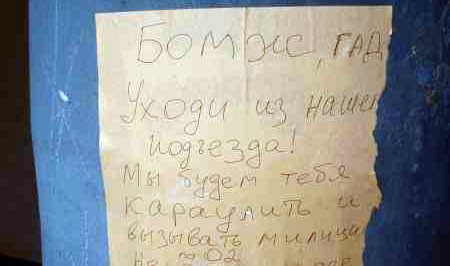 Бомж, гад
Уходи из нашег
подъезда!
Мы будем тебя
караулить и
вызывать милици
на 02